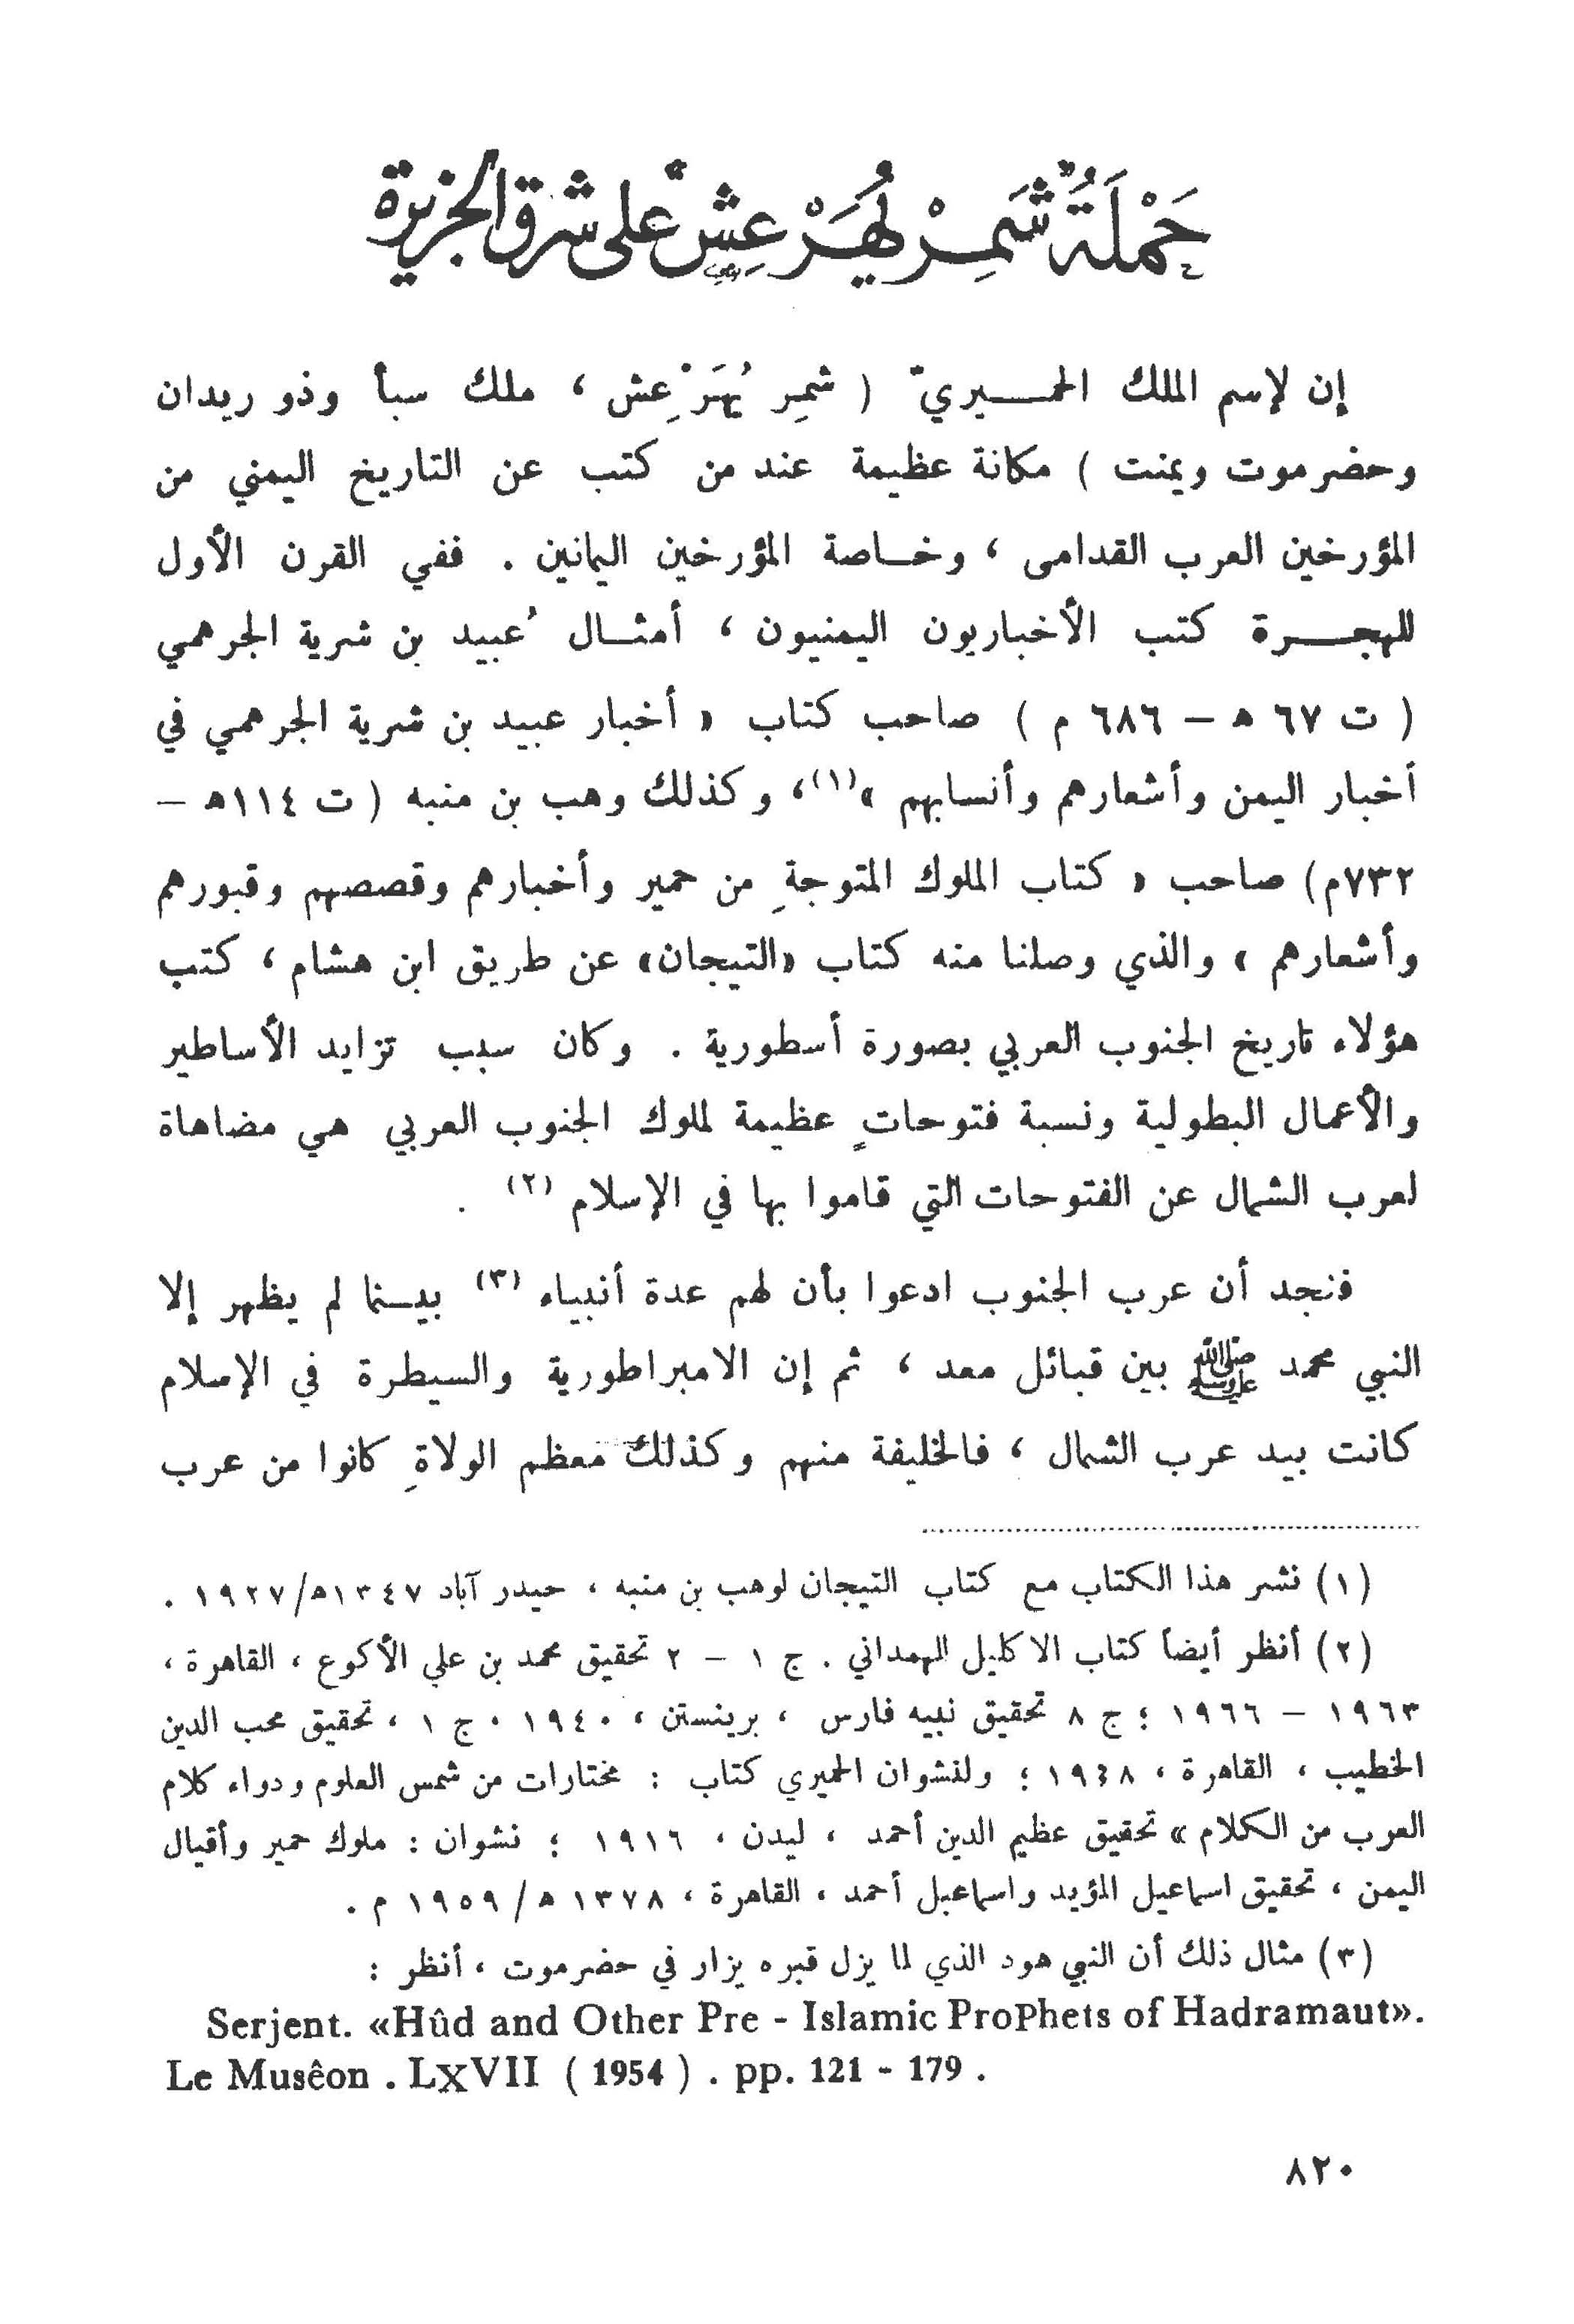 حَمْلَةُ شَمِرْ يُهَرْعِشْ على شرق الجزيرة
إن لإسم الملك الحمـــيريّ ( شمِر يُهَرْعِش ، ملك سبأ وذو ريدان
وحضرموت ويمنت ) مكانة عظيمة عند من كتب عن التاريخ اليمني من
المؤرخين العرب القدامى ، وخـاصة المؤرخين اليمانين . ففي القرن الأول
للهجـــرة كتب الأخباريون اليمنيون ، أمثـال ُعبيد بن شرية الجرهمي
( ت ٦٧ ه – ٦٨٦ م ) صاحب كتاب « أخبار عبيد بن شرية الجرهمي في
أخبار اليمن وأشعارهم وأنسابهم »(١)، وكذلك وهب بن منبه ( ت ١١٤ه –
٧٣٢م) صاحب « كتاب الملوك المتوجةِ من حمير وأخبارهم وقصصهم وقبورهم
وأشعارهم » والذي وصلنا منه كتاب «التيجان» عن طريق ابن هشام ، كتب
هؤلاء تاريخ الجنوب العربي بصورة أسطورية . وكان سبب تزايد الأساطير
والأعمال البطولية ونسبة فتوحاتٍ عظيمة لملوك الجنوب العربي هي مضاهاة
لعرب الشمال عن الفتوحات التي قاموا بها في الإسلام (٢) .
فنجد أن عرب الجنوب ادعوا بأن لهم عدة أنبياء (٣) بيـنما لم يظهر إلا
النبي محمد ﷺ بين قبائل معد ، ثم إن الامبراطورية والسيطرة في الإسلام
كانت بيد عرب الشمال ، فالخليفة منهم وكذلك معظم الولاةِ كانوا من عرب
(١) نشر هذا الكتاب مع كتاب التيجان لوهب بن منبه ، حيدر آباد ١٣٤٧ه/١٩٢٧ .
(٢) أنظر أيضاً كتاب الاكليل الهمداني . ج ١ – ٢ تحقيق محمد بن علي الأكوع ، القاهرة ،
١٩٦٣ – ١٩٦٦ ؛ ج ٨ تحقيق نبيه فارس ، برينستن ، ١٩٤٠ . ج ١ ، تحقيق محب الدين
الخطيب ، القاهرة ، ١٩٤٨ ؛ ولنشوان الحميري كتاب : مختارات من شمس العلوم ودواء كلام
العرب من الكلام » تحقيق عظيم الدين أحمد ، ليدن ، ١٩١٦ ؛ نشوان : ملوك حمير وأقيال
اليمن ، تحقيق اسماعيل المؤيد واسماعيل أحمد ، القاهرة ، ١٣٧٨ ه / ١٩٥٩ م .
(٣) مثال ذلك أن النبي هود الذي لما يزل قبره يزار في حضرموت ، أنظر :
Serjent. «Hûd and Other Pre - Islamic ProPhets of Hadramaut».
Le Musêon . LXVII ( 1954 ) . pp. 121 - 179 .
٨٢٠